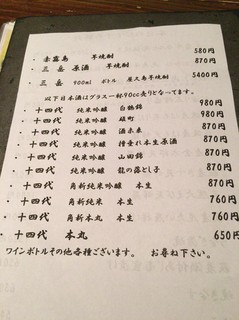 ・ 赤霧島 芋焼酎 580円
・ 三岳 原酒 芋焼酎 870円
・ 三岳 900ml ボトル 屋久島芋焼酎 5400円
以下日本酒はグラス一杯90cc売りとなってます。
・ 十四代 純米吟醸 白鶴錦 980円
・ 十四代 純米吟醸 雄町 980円
・ 十四代 純米吟醸 酒未来 870円
・ 十四代 純米吟醸 槽垂れ本生原酒 870円
・ 十四代 純米吟醸 山田錦 870円
・ 十四代 純米吟醸 龍の落とし子 870円
・ 十四代 角新純米吟醸 本生 870円
・ 十四代 角新純米 本生 760円
・ 十四代 角新本丸 本生 760円
・ 十四代 本丸 650円
ワインボトルその他各種ございます。 お尋ね下さい。